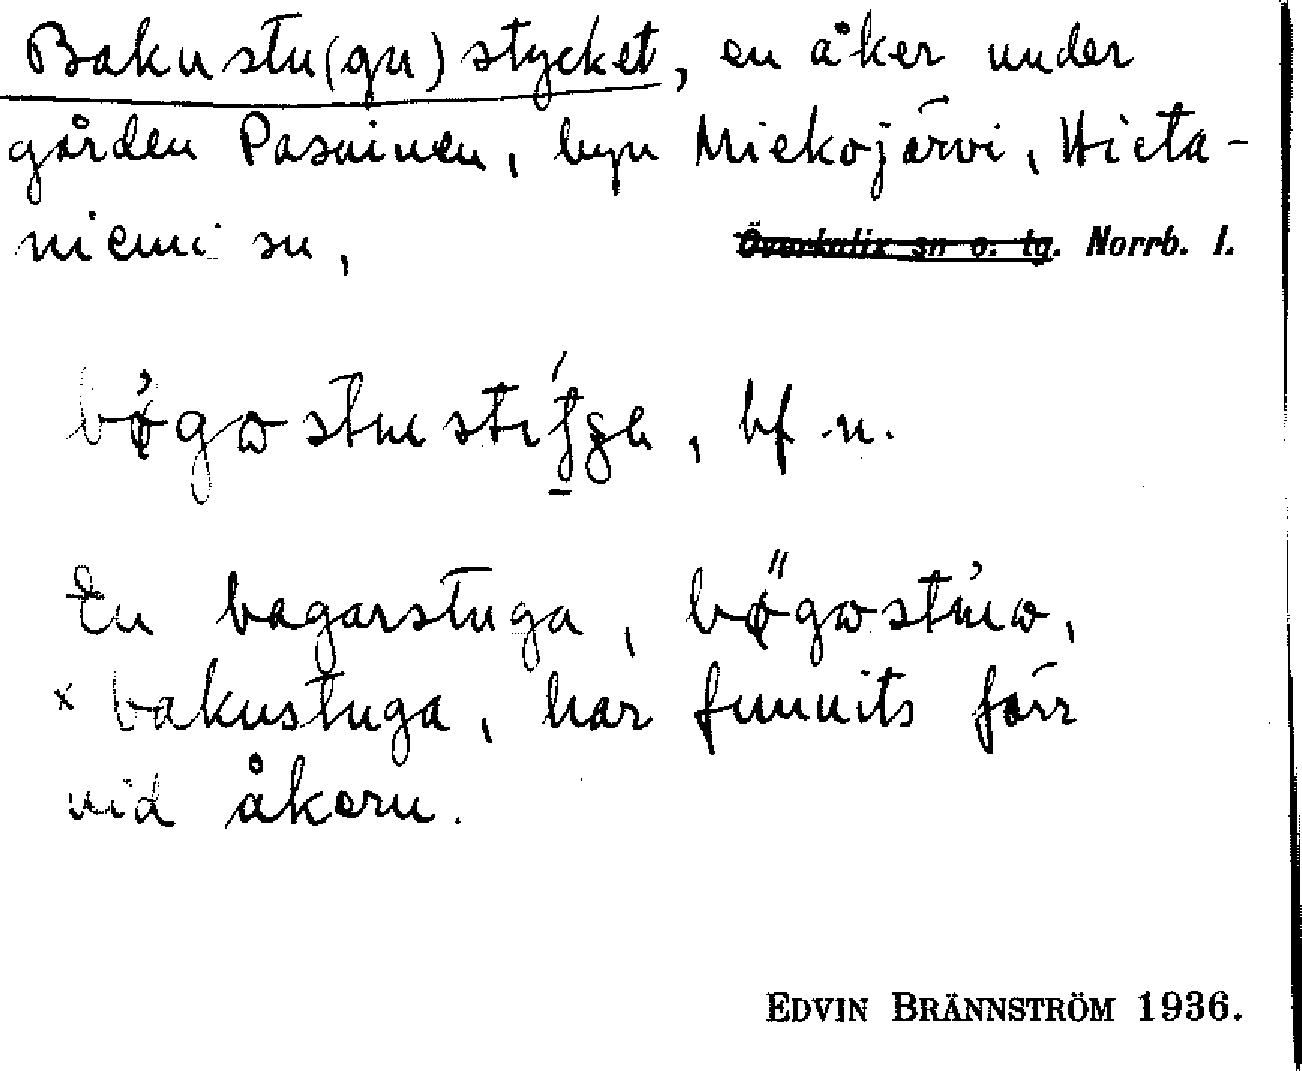 Bakustu(gu)stycket, en åker under
gården Pasainen, byn Miekojärvi, Hieta-
niemi sn, Överkalix sn o. tg. Norrb. l.
bf n.
En bagarstuga,
× bakustuga, har funnits förr
vid åkern.
EDVIN BRÄNNSTRÖM 1936.